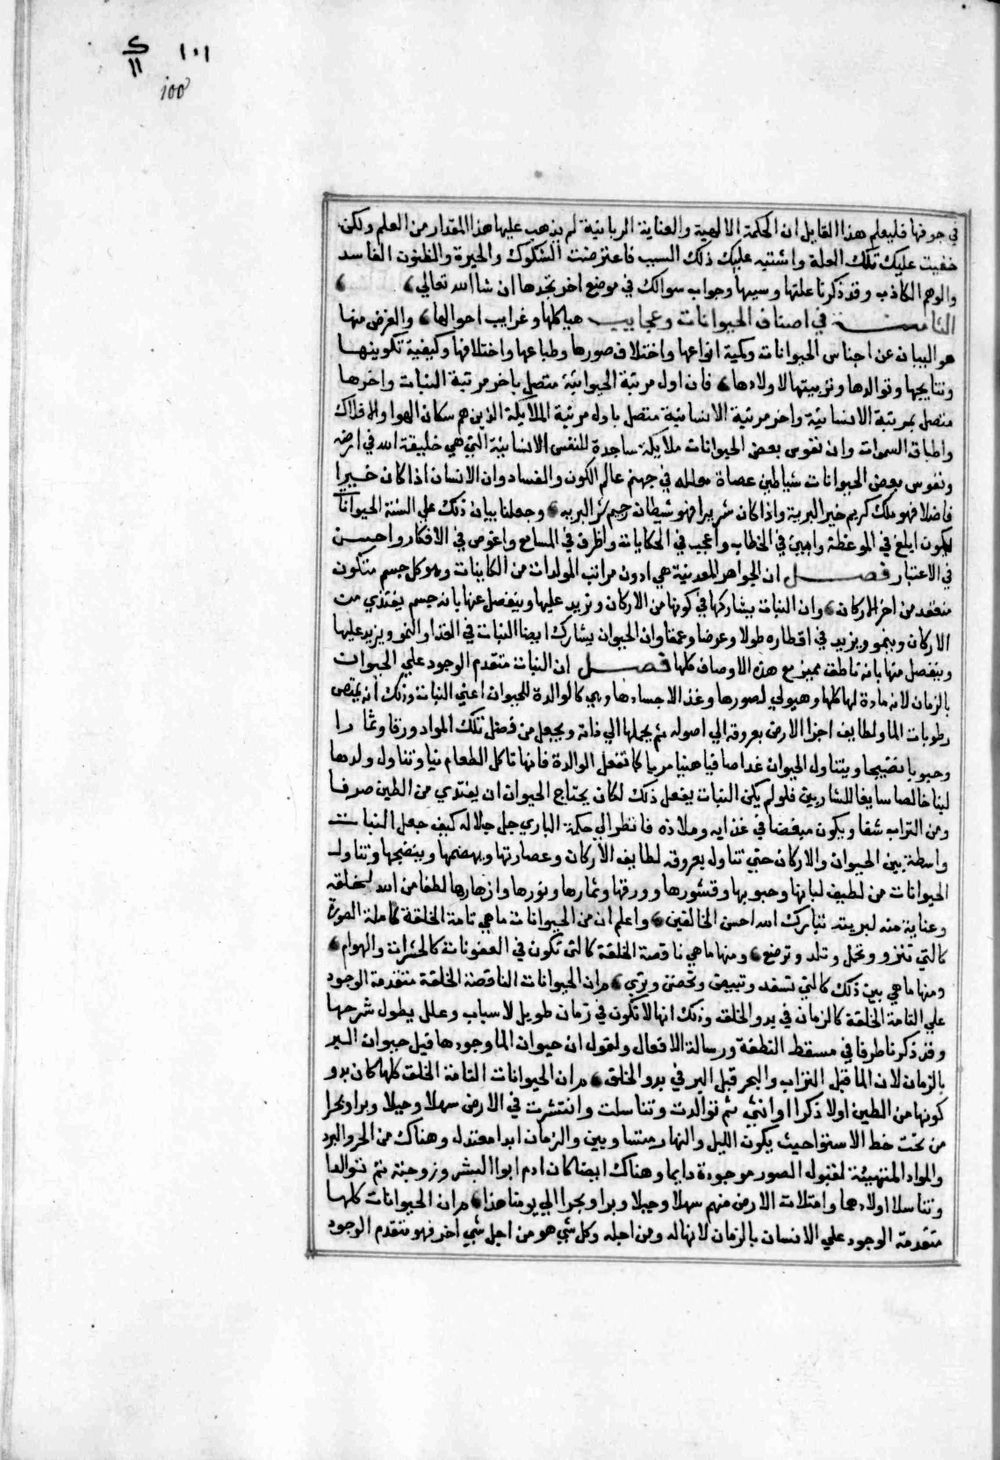 ١٠١
100
في جوفها فليعلم هذا القايل ان الحكمة الالهية والعناية الربانية لم يذهب عليها هذا المقدار من العلم ولكن
خفيت عليك تلك العلة واشتبه عليك ذلك السبب فاعترضت الشكوك والحيرة والظنون الفاسد
والوهم الكاذب وقد ذكرنا علتها وسببها وجواب سوالك في موضع اخر تجدها ان شا الله تعالي
الثامنة في اصناف الحيوانات وعجايب هياكلها وغرايب احوالها والغرض منها
هو البيان عن اجناس الحيوانات وكمية انواعها واختلاف صورها وطباعها واختلافها وكيفية تكوينها
ونتايجها وتوالدها وتربيتها لاولادها فان اول مرتبة الحيوانية متصل باخر مرتبة النبات واخرها
متصل بمرتبة الانسانية واخر مرتبة الانسانية متصل باول مرتبة الملايكة الذين هم سكان الهوا والافلاك
واطباق السموات وان نفوس بعض الحيوانات ملايكة ساجدة للنفس الانسانية التي هي خليفة الله في ارضه
ونفوس بعض الحيوانات شياطين عصاة مغلله في جهنم عالم الكون والفساد وان الانسان اذا كان خيرا
فاضلا فهو ملك كريم خير البرية واذا كان شريرا فهو شيطان رجيم شر البريه وجعلنا بيان ذلك علي السنة الحيوانات
ليكون ابلغ في الموعظة وابين في الخطاب واعجب في الحكايات واظرف في المسامع واغوص في الافكار واحسن
في الاعتبار فصل ان الجواهر المعدنية هي ادون مراتب المولدات من الكاينات وهو كل جسم متكون
منعقد من اجزا الاركان وان النبات يشاركها في كونها من الاركان ويزيد عليها وينفصل عنها بانه جسم يغتذي من
الاركان وينمو ويزيد في اقطاره طولا وعرضا وعمقا وان الحيوان يشارك ايضا النبات في الغذا والنمو ويزيد عليها
وينفصل منها بانه ناطق مميز مع هذه الاوصاف كلها فصل ان النبات متقدم الوجود علي الحيوات
بالزمان لانه مادة لها كلها وهيولي لصورها وغذا لاجسادها وهي كالوالدة للحيوان اعني النبات وذلك انه يمتص
رطوبات الما ولطايف اجزا الارض بعروقه الي اصوله ثم يحملها الي ذاته ويجعل من فضل تلك المواد ورقا وثمارا
وحبوبا نضيجا ويتناول الحيوان غذا صافيا هنيا مريا كما تفعل الوالدة فانها تاكل الطعام نيا وتناول ولدها
لبنا خالصا سايغا للشاربين فلو لم يكن النبات يفعل ذلك لكان يحتاج الحيوان ان يغتذي من الطين صرفا
ومن التراب شفا ويكون مبغضا في غذايه وملاذه فانظر الي حكمة الباري جل جلاله كيف جعل النبات
واسطة بين الحيوان والاركان حتي تناول بعروقه لطايف الاركان وعصارتها ويهضمها وينضجها وتناول
الحيوانات من لطيف لبابها وحبوبها وقشورها وورقها وثمارها ونورها وازهارها لطفا من الله لخلقه
وعناية منه لبريته تبارك الله احسن الخالقين واعلم ان من الحيوانات ما هي تامة الخلقة كاملة الصورة
كالتي تنزو وتحمل وتلد وترضع ومنها ما هي ناقصة الخلقة كالتي تكون في العفونات كالحشرات والهوام
ومنها ما هي بين ذلك كالتي تسفد وتبيض وتحضن وتربي وان الحيوانات الناقصة الخلقة متقدمة الوجود
علي التامة الخلقة كالزمان في بدو الخلقه وذلك انها لا تكون في زمان طويل لاسباب وعلل يطول شرحها
وقد ذكرنا طرفا في مسقط النطفة ورسالة الافعال ولقول ان حيوان الما وجودها قبل حيوان البر
بالزمان لان الما قبل التراب والبحر قبل البر في بدو الخلق وان الحيوانات التامة الخلق كلها كان بدو
كونها من الطين اولا ذكرا او انثي ثم توالدت وتناسلت وانتشرت في الارض سهلا وجبلا وبرا وبحرا
من تحت خط الاستوا حيث يكون الليل والنهار متساويين والزمان ابدا معتدله وهناك من الحر والبرد
والمواد المتهيئة لقبول الصور موجودة دايما وهناك ايضا كان ادم ابوا البشر وزوجته ثم توالدا
وتناسلا اولادهما وامتلات الارض منهم سهلا وجبلا وبرا وبحرا الي يومنا هذا وان الحيوانات كلها
متقدمة الوجود علي الانسان بالزمان لانها له ومن اجله وكل شي هو من اجل شي اخر فهو متقدم الوجود